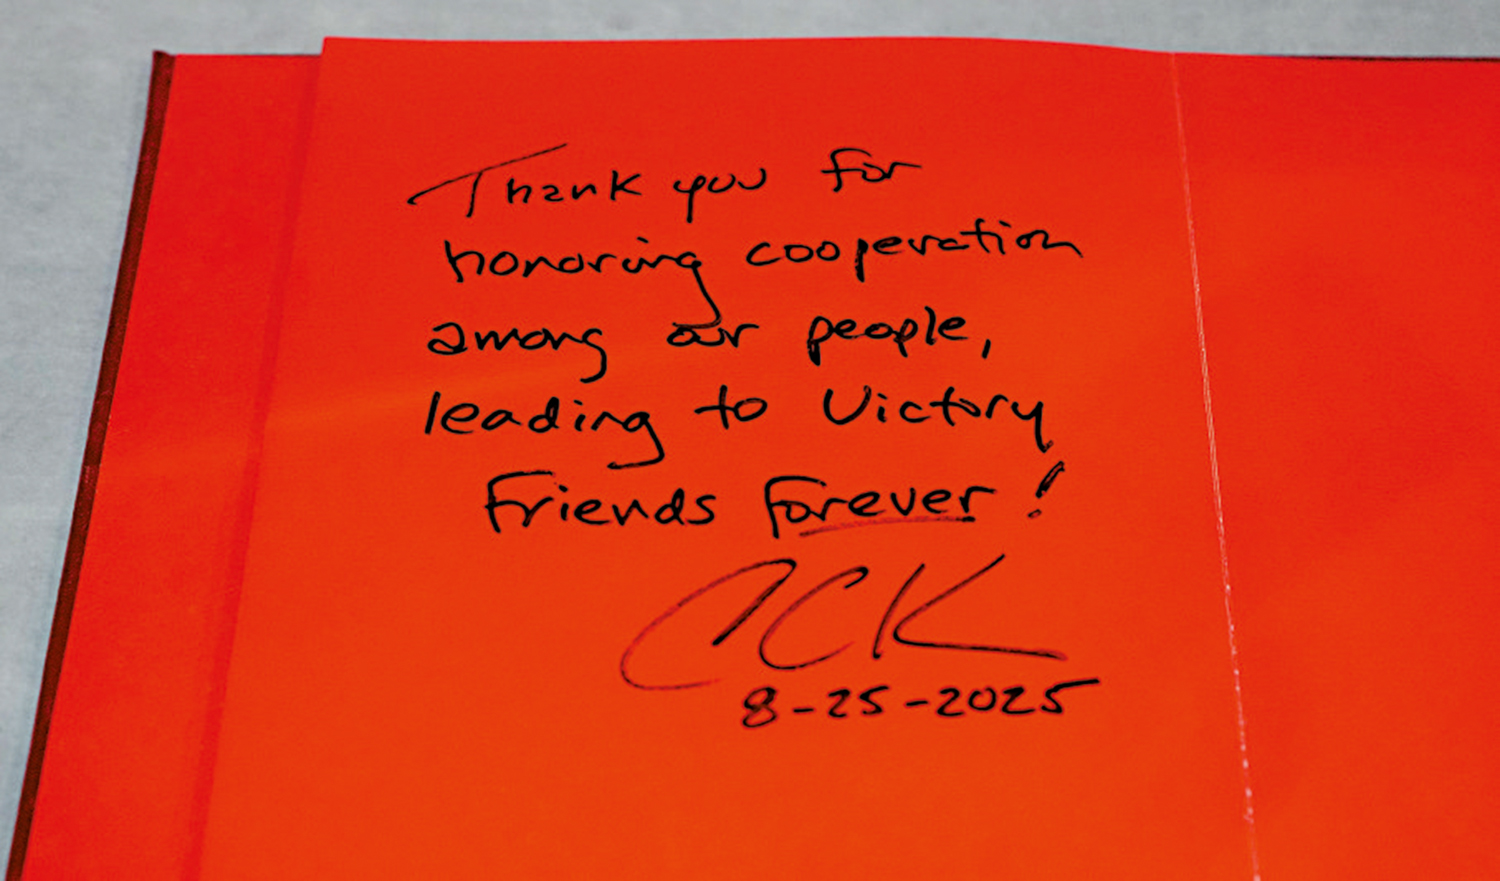 Thank you for
honoring cooperation
among our people,
leading to Victory
Friends Forever!
CCK
8-25-2025